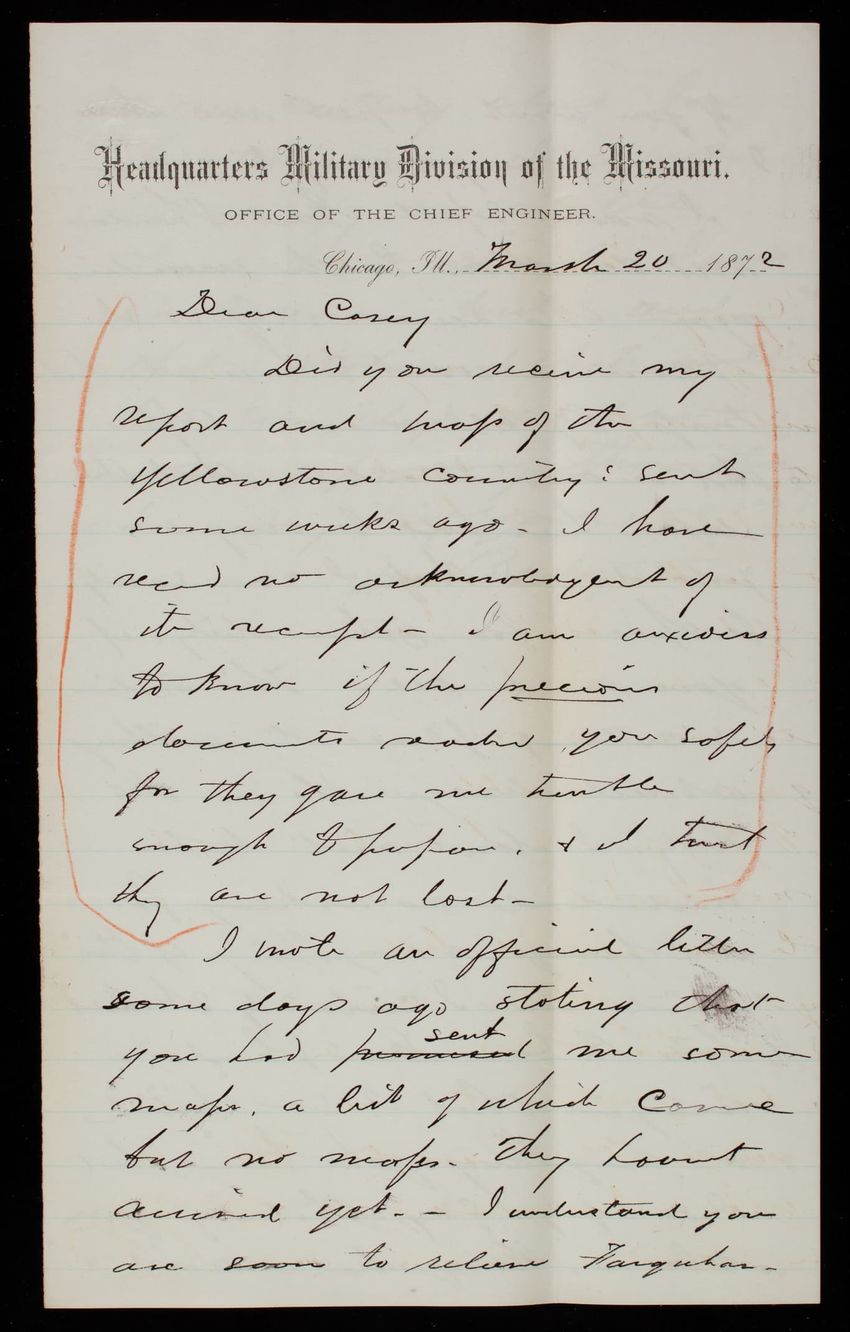 Headquarters Military Division of the Missouri.
OFFICE OF THE CHIEF ENGINEER.
Chicago, Ill., March 20 1872
Dear Casey
Did you receive my
report and map of the
Yellowstone Country: sent
some weeks ago - I have
recd no acknowledgent of
its receipt - I am anxious
to know if the precious
documents reached you safely
for they gave me trouble
enough to prepare, & I trust
they are not lost -
I wrote an official letter
some days ago stating that
sent
you had promised me some
maps, a list of which came
but no maps. They havent
arrived yet. - I understand you
are soon to relieve Farquhar -